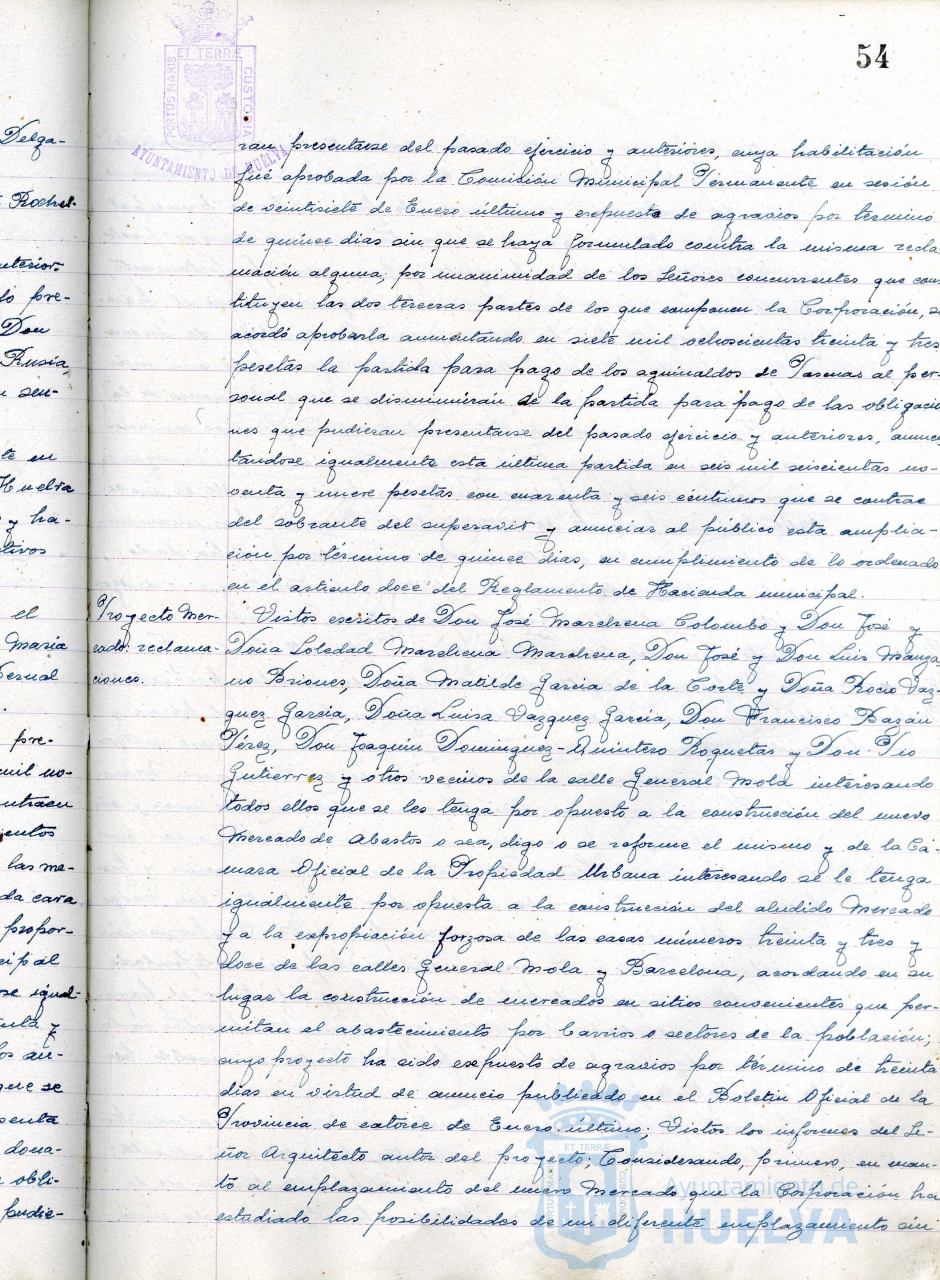 54
PORTUS MARIS ET TERRÆ CUSTODIA
AYUNTAMIENTO DE HUELVA
Delga-
Rochel-
anterior.
pre-
Don
Rusia,
sen-
te en
Huelva
y ha-
tivos
el
Maria
Bernal
pre-
mil no-
ntraen
ientos
las me-
da cara
propor-
cipal
se igual-
enta y
los au-
que se
senta
dona-
obli-
pudie-
ran presentarse del pasado ejercicio y anteriores, cuya habilitación
fué aprobada por la Comisión Municipal Permanente en sesión
de veintisiete de Enero último y expuesta de agravios por término
de quince dias sin que se haya formulado contra la misma recla
mación alguna, por unanimidad de los Señores concurrentes que cons
tituyen las dos terceras partes de los que componen la Corporación, se
acordó aprobarla aumentando en siete mil ochocientas treinta y tres
pesetas la partida para pago de los aguinaldos de Pascuas al per-
sonal que se disminuirán de la partida para pago de las obligacio
nes que pudieran presentarse del pasado ejercicio y anteriores, aumen
tándose igualmente esta última partida en seis mil seiscientas no-
venta y nueve pesetas con cuarenta y seis céntimos que se contrae
del sobrante del superavit y anuncias al público esta amplia-
ción por término de quince dias, en cumplimiento de lo ordenado
en el articulo doce del Reglamento de Hacienda municipal.
Proyecto Mer-
cado: reclama-
ciones.
Vistos escritos de Don José Marchena Colombo y Don José y
Doña Soledad Marchena Marchena, Don José y Don Luis Manza
no Briones, Doña Matilde Garcia de la Corte y Doña Rocio Vaz-
quez Garcia, Doña Luisa Vazquez Garcia, Don Francisco Bazán
Pérez, Don Joaquin Dominguez-Quintero Roquetas y Don Pio
Gutierrez y otros vecinos de la calle General Mola interesando
todos ellos que se les tenga por opuesto a la construcción del nuevo
Mercado de Abastos o sea, digo o se reforme el mismo y de la Cá-
mara Oficial de la Propiedad Urbana interesando se le tenga
igualmente por opuesta a la construcción del aludido Mercado
y a la expropiación forzosa de las casas números treinta y tres y
doce de las calles General Mola y Barcelona, acordando en su
lugar la construcción de mercados en sitios convenientes que per-
mitan el abastecimiento por barrios o sectores de la población;
cuyo proyecto ha sido expuesto de agravios por término de treinta
dias en virtud de anuncio publicado en el Boletin Oficial de la
Provincia de catorce de Enero último; Vistos los informes del Se-
ñor Arquitecto autor del proyecto; Considerando, primero, en cuan-
to al emplazamiento del nuevo Mercado que la Corporación ha
estudiado las posibilidades de un diferente emplazamiento sin
Ayuntamiento de
HUELVA